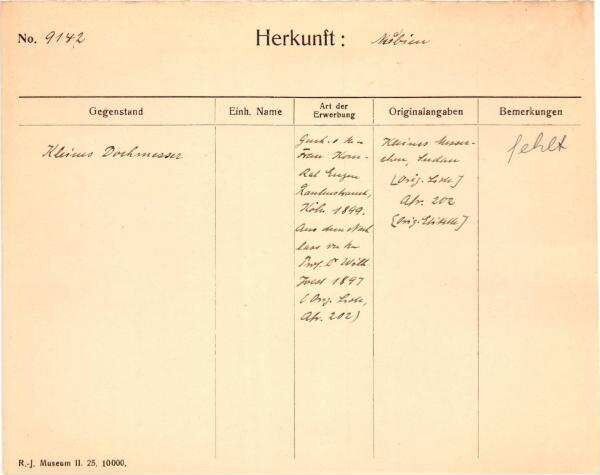 No. 9142
Herkunft: Nubien
Gegenstand
Einh. Name
Art der
Erwerbung
Originalangaben
Bemerkungen
Kleines Dochmesser
Gesch. v.
Frau Kom-
Rat Eugen
Rautenstrauch,
Köln 1899.
Aus dem Nach
lass
Prof. Dr. Wilh
Joest 1897
(Orig. Liste,
Afr. 202)
Kleines Messer-
chen, Sudan
[Orig. Liste]
Afr. 202
[Orig. Etikette]
fehlt
R.-J. Museum II. 25. 10000.